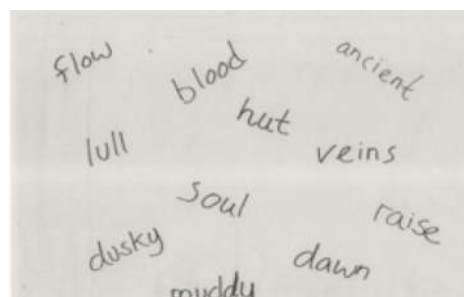 flow
blood
ancient
hut
lull
veins
soul
raise
dusky
dawn
muddy